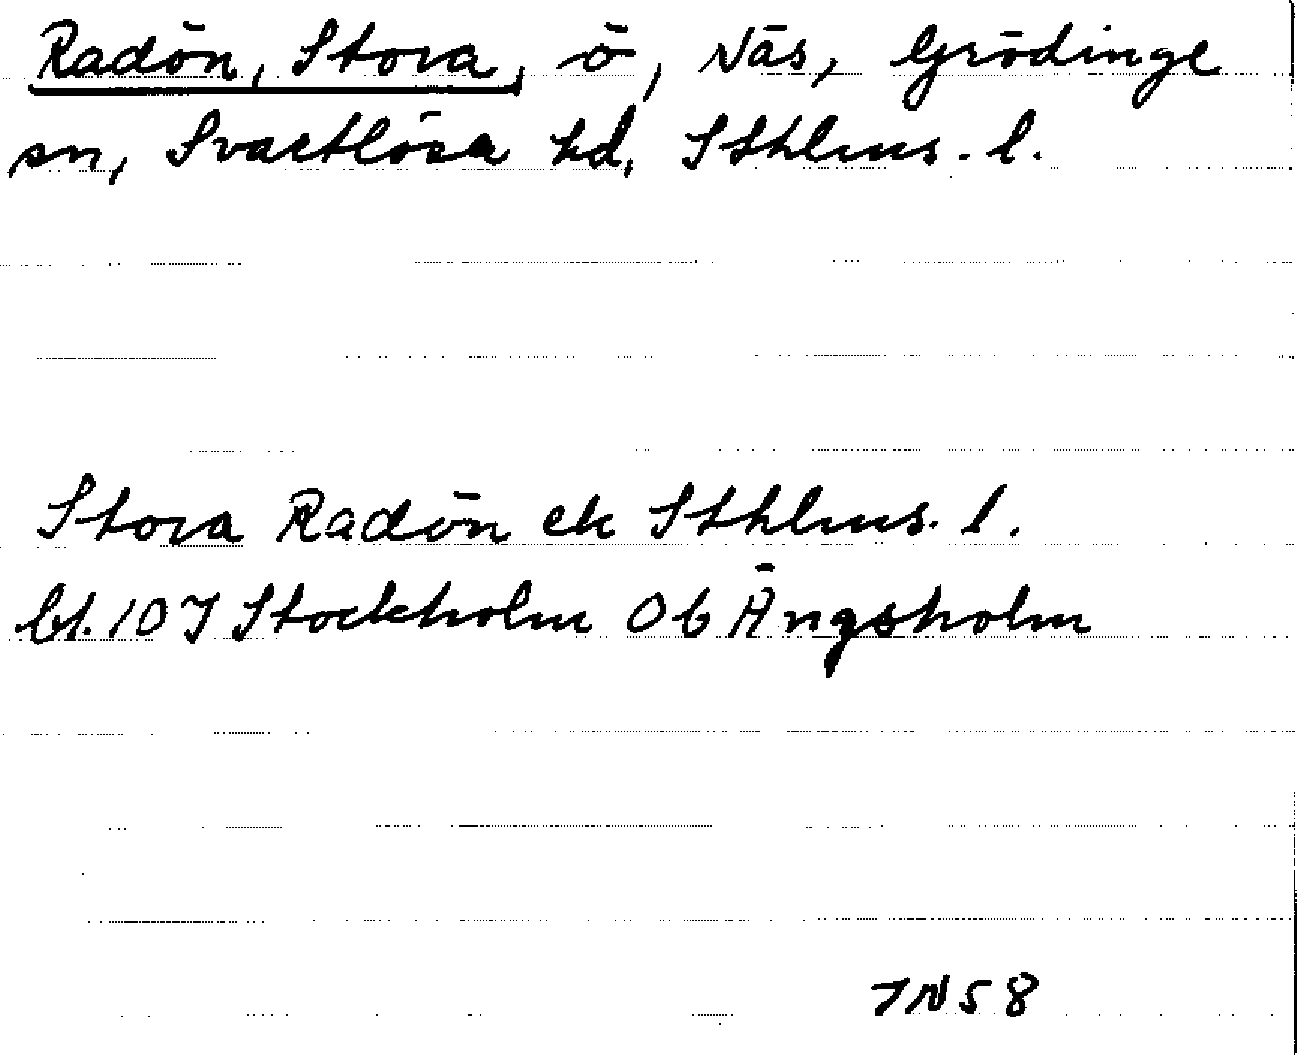 Radön, Stora, ö, Näs, Grödinge
sn, Svartlösa hd, Sthlms. l.
Stora Radön ek Sthlms. l.
bl. 10 I Stockholm Ob Ängsholm
IN58